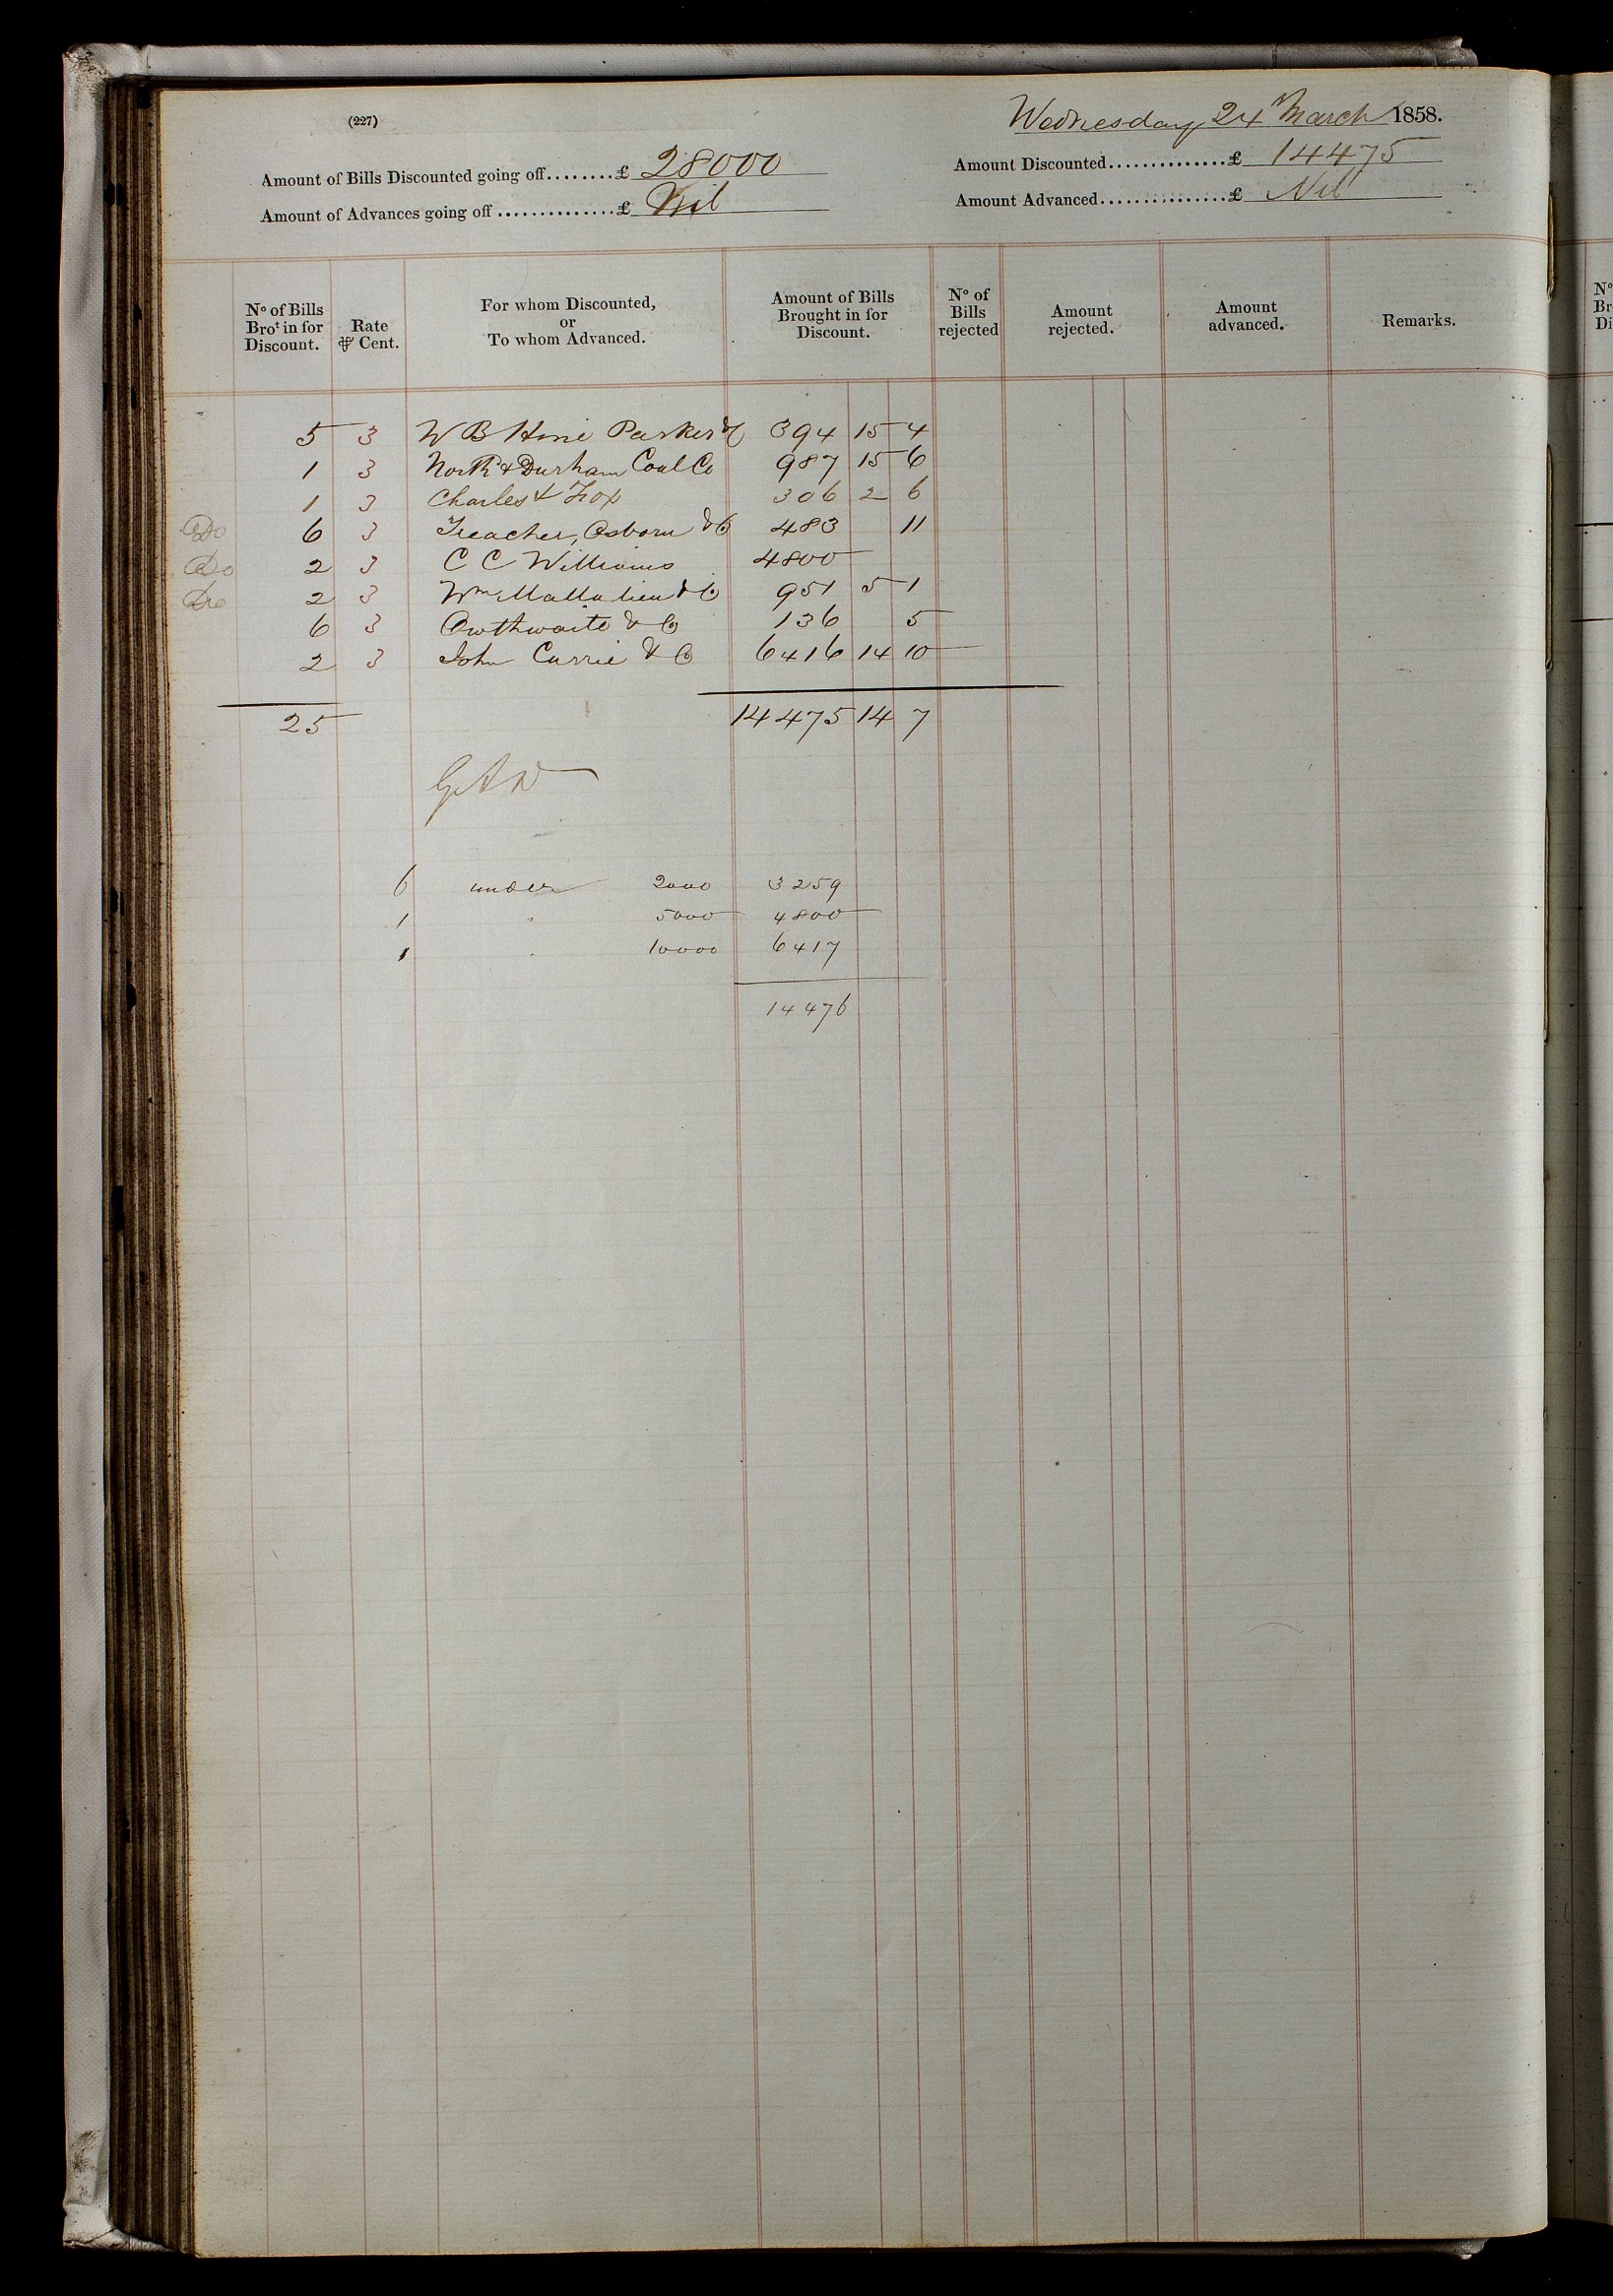 (227)
Wednesday 24 March 1858.
Amount of Bills Discounted going off........£ 28000
Amount Discounted..............£ 14475
Amount of Advances going off..............£ Nil
Amount Advanced...............£ Nil
Nº of Bills Broᵗ in for Discount.
Rate ⅌ Cent.
For whom Discounted, or To whom Advanced.
Amount of Bills Brought in for Discount.
Nº of Bills rejected
Amount rejected.
Amount advanced.
Remarks.
5 3 W B Hine Parker & C 394 15 4
1 3 North & Durham Coal Co 987 15 6
1 3 Charles & Fox 306 2 6
Do 6 3 Treacher, Osborn & Co 483 11
Do 2 3 C C Williams 4800
Do 2 3 Wm Mallalieu & Co 951 5 1
6 3 Owthwaite & Co 136 5
2 3 John Currie & Co 6416 14 10
25 14475 14 7
6 under 2000 3259
1 " 5000 4800
1 " 10000 6417
14476
Nº
Br
Di